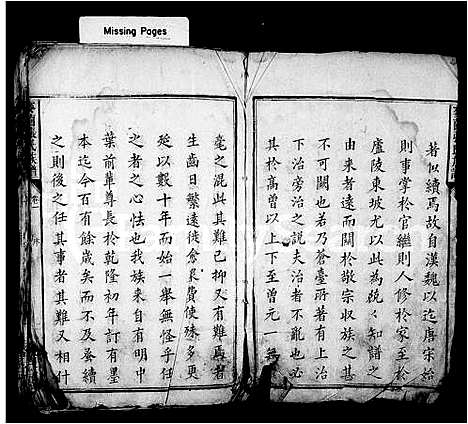 Missing Pages
著似續焉故自漢魏以迄唐宋始
則事掌於官繼則人修於家至於
廬陵東坡尤以此為兢兢知譜之
由來者遠而關於敬宗收族之甚
不可闕也若乃蒼臺所著有上治
下治旁治之說夫治者不亂也必
其於高曾以上下至曾元一無
毫之混此其難已抑又有難焉者
生齒日繁遠徙愈衆費使殊多更
延以數十年而始一舉無怪乎任
之者之心怯也我族來自有明中
葉前輩尊長於乾隆初年訂有墨
本迄今百有餘歲矣而不及蚤續
之則後之任其事者其難又相什